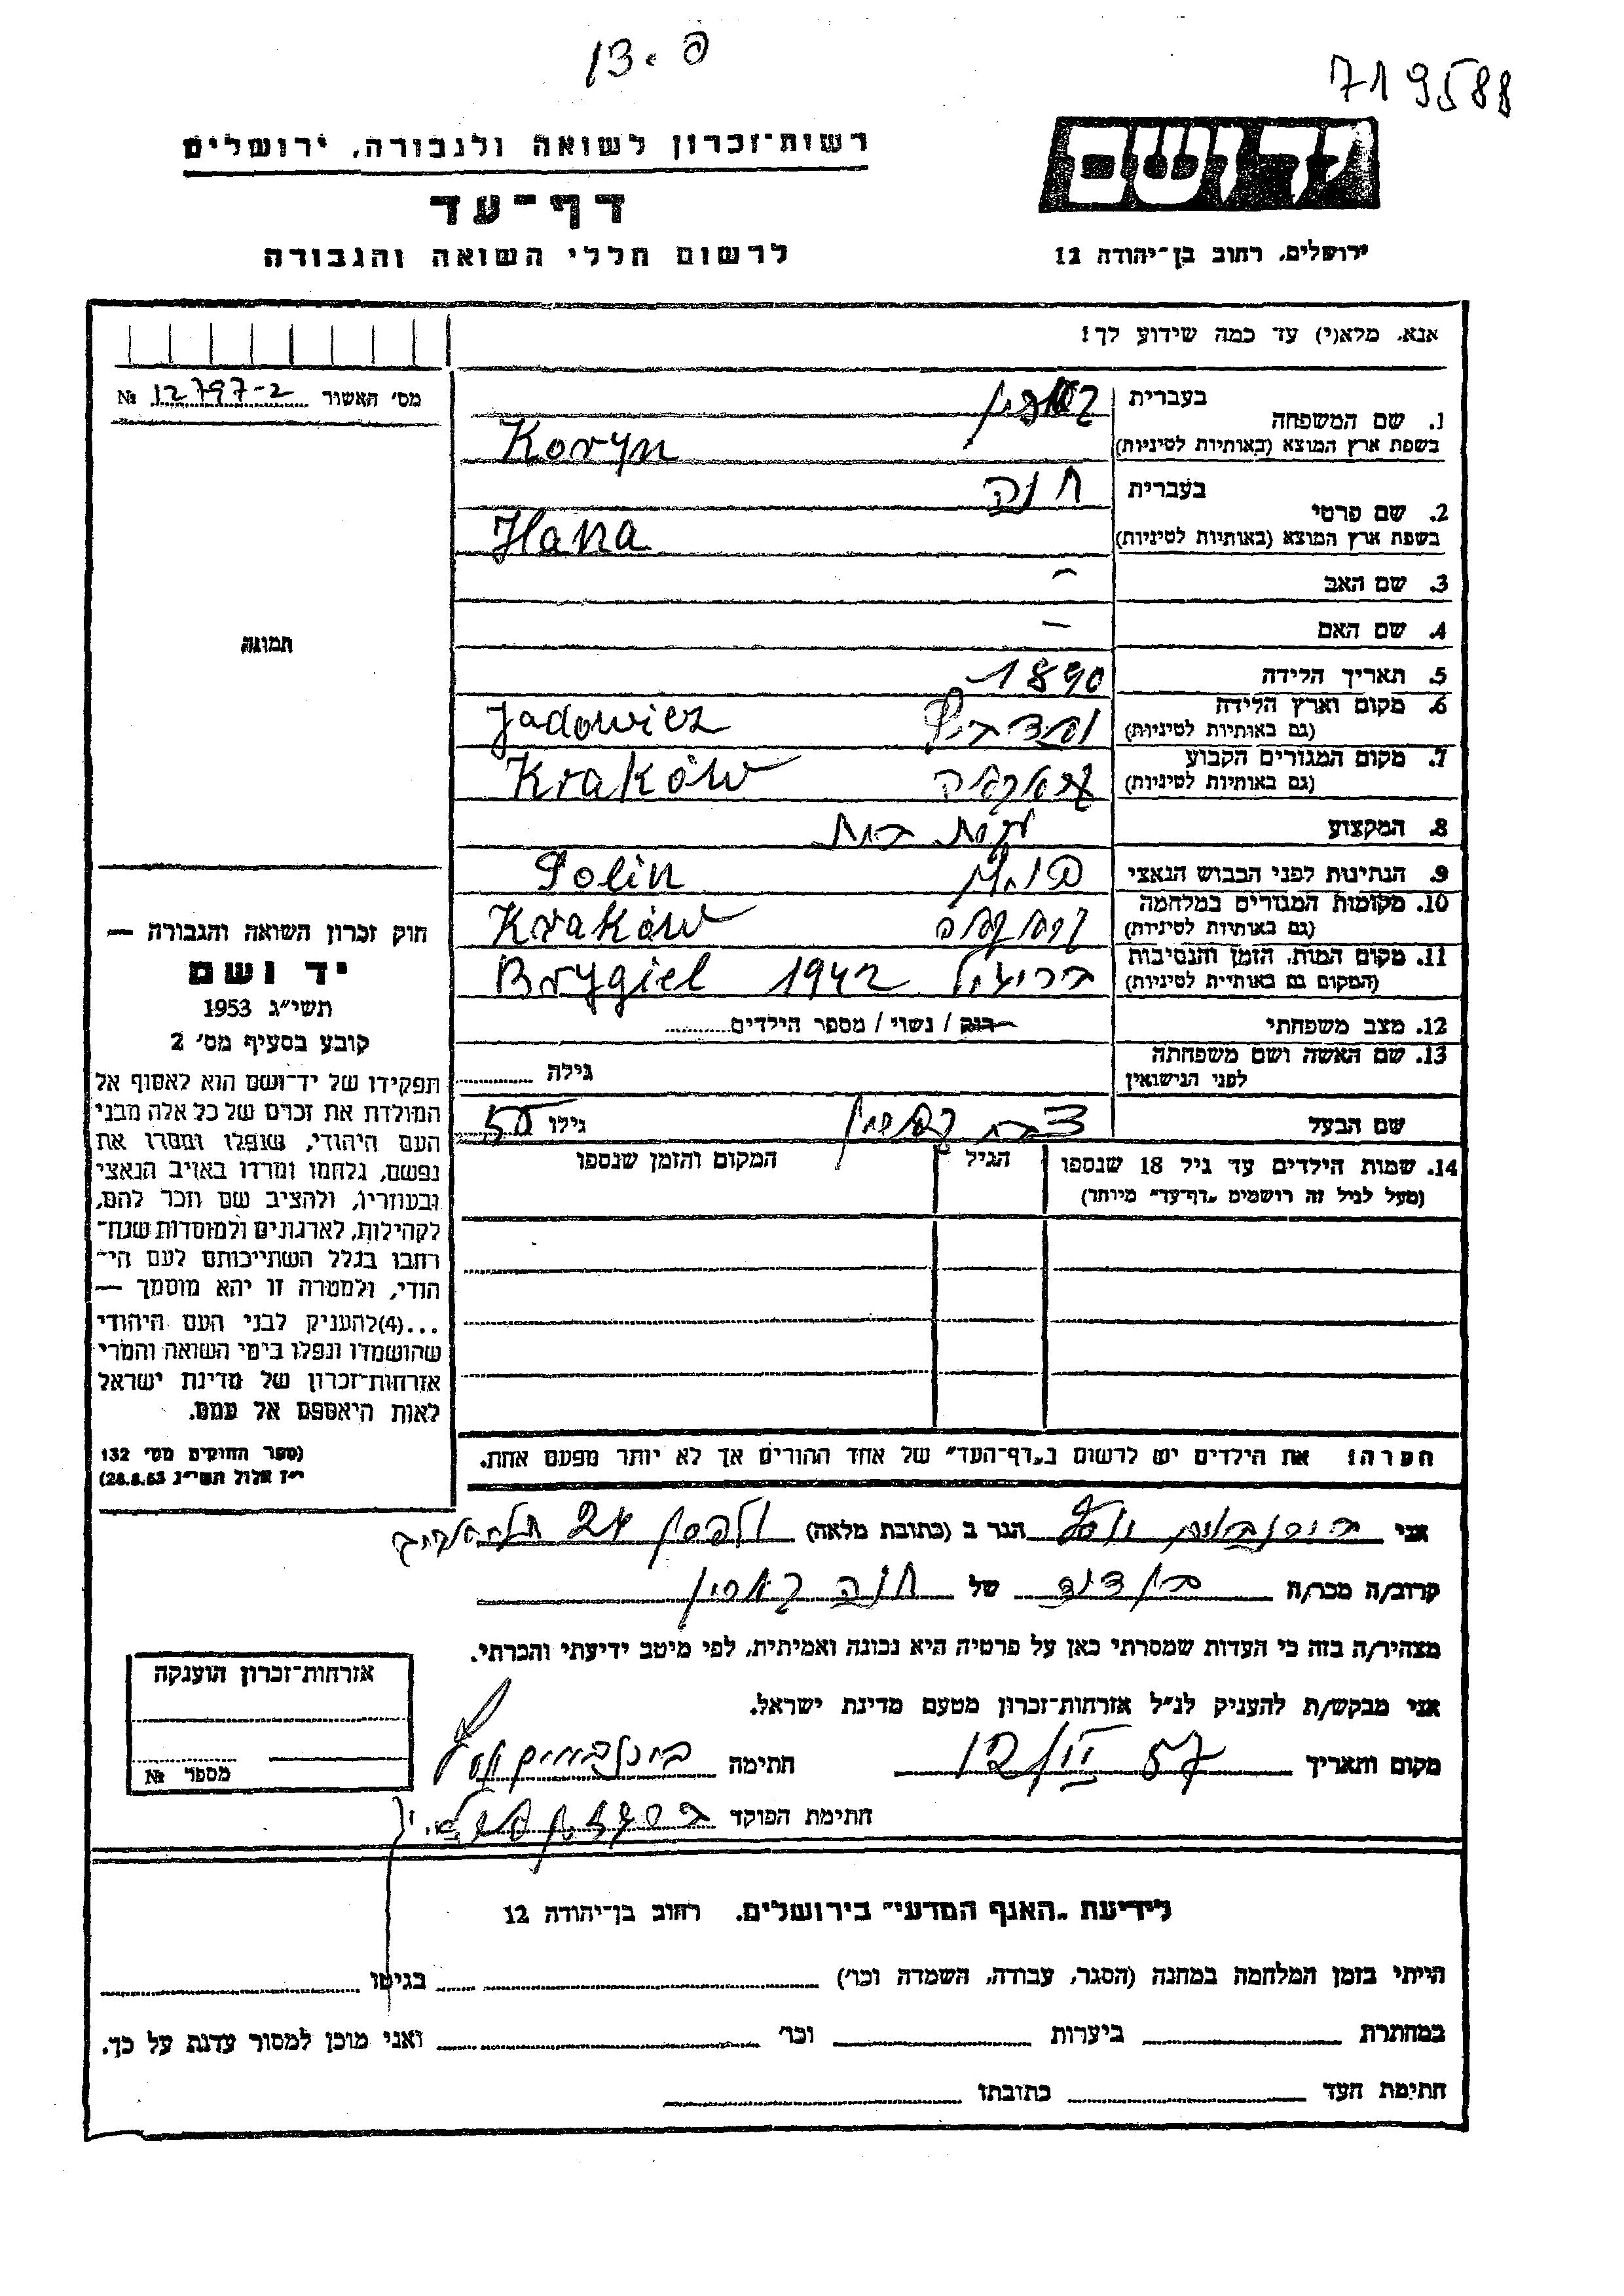 פ. 13
719588
יד ושם
רשות־זכרון לשואה ולגבורה, ירושלים
דף־עד
לרשום חללי השואה והגבורה
ירושלים, רחוב בן־יהודה 12
אנא, מלא(י) עד כמה שידוע לך!
מס׳ האשור 12797-2 №
1. שם המשפחה בעברית
בשפת ארץ המוצא (באותיות לטיניות) Koryn
2. שם פרטי בעברית חנה
בשפת ארץ המוצא (באותיות לטיניות) Hana
3. שם האב —
4. שם האם —
תמונה
5. תאריך הלידה 1890
6. מקום וארץ הלידה
(גם באותיות לטיניות) Jadowicz
7. מקום המגורים הקבוע
(גם באותיות לטיניות) קראקוב Kraków
8. המקצוע עקרת בית
9. הנתינות לפני הכבוש הנאצי פולין Polin
10. מקומות המגורים במלחמה
(גם באותיות לטיניות) קראקוב Kraków
11. מקום המות, הזמן והנסיבות
(המקום גם באותיות לטיניות) Brygiel 1942
12. מצב משפחתי רוק / נשוי / מספר הילדים
13. שם האשה ושם משפחתה
לפני הנישואין גילה
שם הבעל גילו 50
14. שמות הילדים עד גיל 18 שנספו הגיל המקום והזמן שנספו
(מעל לגיל זה רושמים „דף־עד” מיוחד)
חוק זכרון השואה והגבורה —
יד ושם
תשי״ג 1953
קובע בסעיף מס׳ 2
תפקידו של יד־ושם הוא לאסוף אל
המולדת את זכרם של כל אלה מבני
העם היהודי, שנפלו ומסרו את
נפשם, נלחמו ומרדו באויב הנאצי
ובעוזריו, ולהציב שם וזכר להם,
לקהילות, לארגונים ולמוסדות שנח־
רבו בגלל השתייכותם לעם הי־
הודי, ולמטרה זו יהא מוסמך —
...(4)להעניק לבני העם היהודי
שהושמדו ונפלו בימי השואה והמרי
אזרחות־זכרון של מדינת ישראל
לאות היאספם אל עמם.
(ספר החוקים מס׳ 132
י״ז אלול תשי״ג 28.8.53)
הערה! את הילדים יש לרשום ב„דף־העד” של אחד ההורים אך לא יותר מפעם אחת.
אני הגר ב (כתובת מלאה) 24 תל־אביב
קרוב/ה מכר/ה בן דוד של חנה קארין
מצהיר/ה בזה כי העדות שמסרתי כאן על פרטיה היא נכונה ואמיתית, לפי מיטב ידיעתי והכרתי.
אני מבקש/ת להעניק לנ״ל אזרחות־זכרון מטעם מדינת ישראל.
מקום ותאריך חתימה
חתימת הפוקד
אזרחות־זכרון הוענקה
מספר №
לידיעת „האגף המדעי” בירושלים, רחוב בן־יהודה 12
הייתי בזמן המלחמה במחנה (הסגר, עבודה, השמדה וכו׳) בגיטו
במחתרת ביערות וכו׳ ואני מוכן למסור עדות על כך.
חתימת העד כתובתו